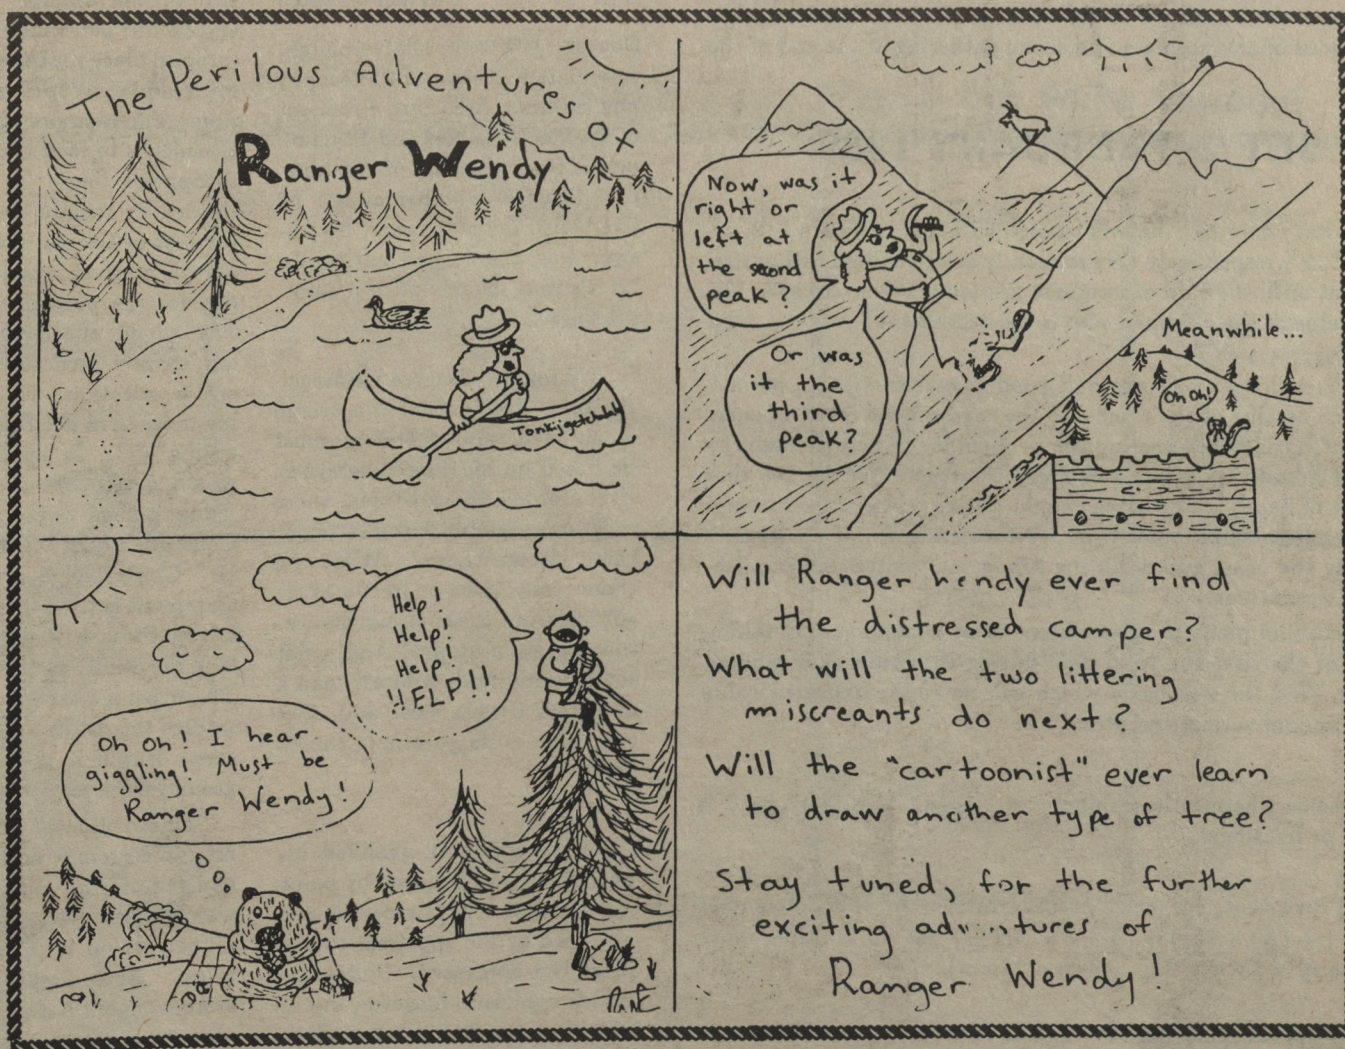 The Perilous Adventures of
Ranger Wendy
Now, was it
right or
left at
the second
peak?
Or was
it the
third
peak?
Meanwhile...
Oh Oh!
Help!
Help!
Help!
HELP!!
Oh Oh! I hear
giggling! Must be
Ranger Wendy!
Will Ranger Wendy ever find
the distressed camper?
What will the two littering
miscreants do next?
Will the "cartoonist" ever learn
to draw another type of tree?
Stay tuned, for the further
exciting adventures of
Ranger Wendy!